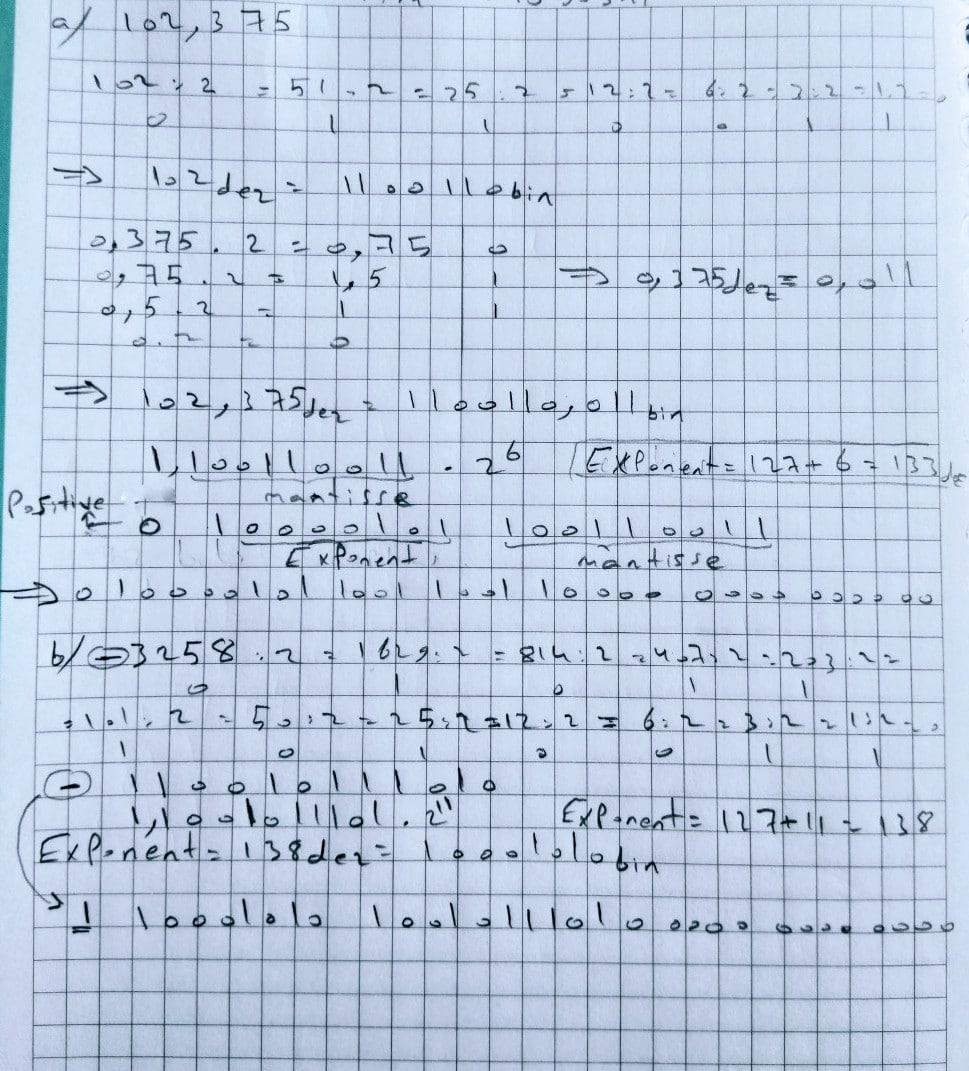 a) 102,375
102 : 2 = 51 : 2 = 25 : 2 = 12 : 2 = 6 : 2 = 3 : 2 = 1 : 2 = 0
0 1 1 0 0 1 1
=> 102dez = 1100110bin
0,375 . 2 = 0,75 0
0,75 . 2 = 1,5 1 => 0,375dez = 0,011
0,5 . 2 = 1 1
0 . 2 = 0
=> 102,375dez = 1100110,011bin
1,100110011 . 2^6 Exponent = 127 + 6 = 133dez
mantisse
Positive
← 0 10000101 100110011
Exponent mantisse
=> 0 10000101 1001 1001 10000 0000 000000
b) -3258 : 2 = 1629 : 2 = 814 : 2 = 407 : 2 = 203 : 2 =
0 1 0 1 1
= 101 : 2 = 50 : 2 = 25 : 2 = 12 : 2 = 6 : 2 = 3 : 2 = 1 : 2 = 0
1 0 1 0 0 1 1
- 110010111010
1,1001011101 . 2^11 Exponent = 127 + 11 = 138
Exponent = 138dez = 10001010bin
1 10001010 10010111010 0000 0000 0000